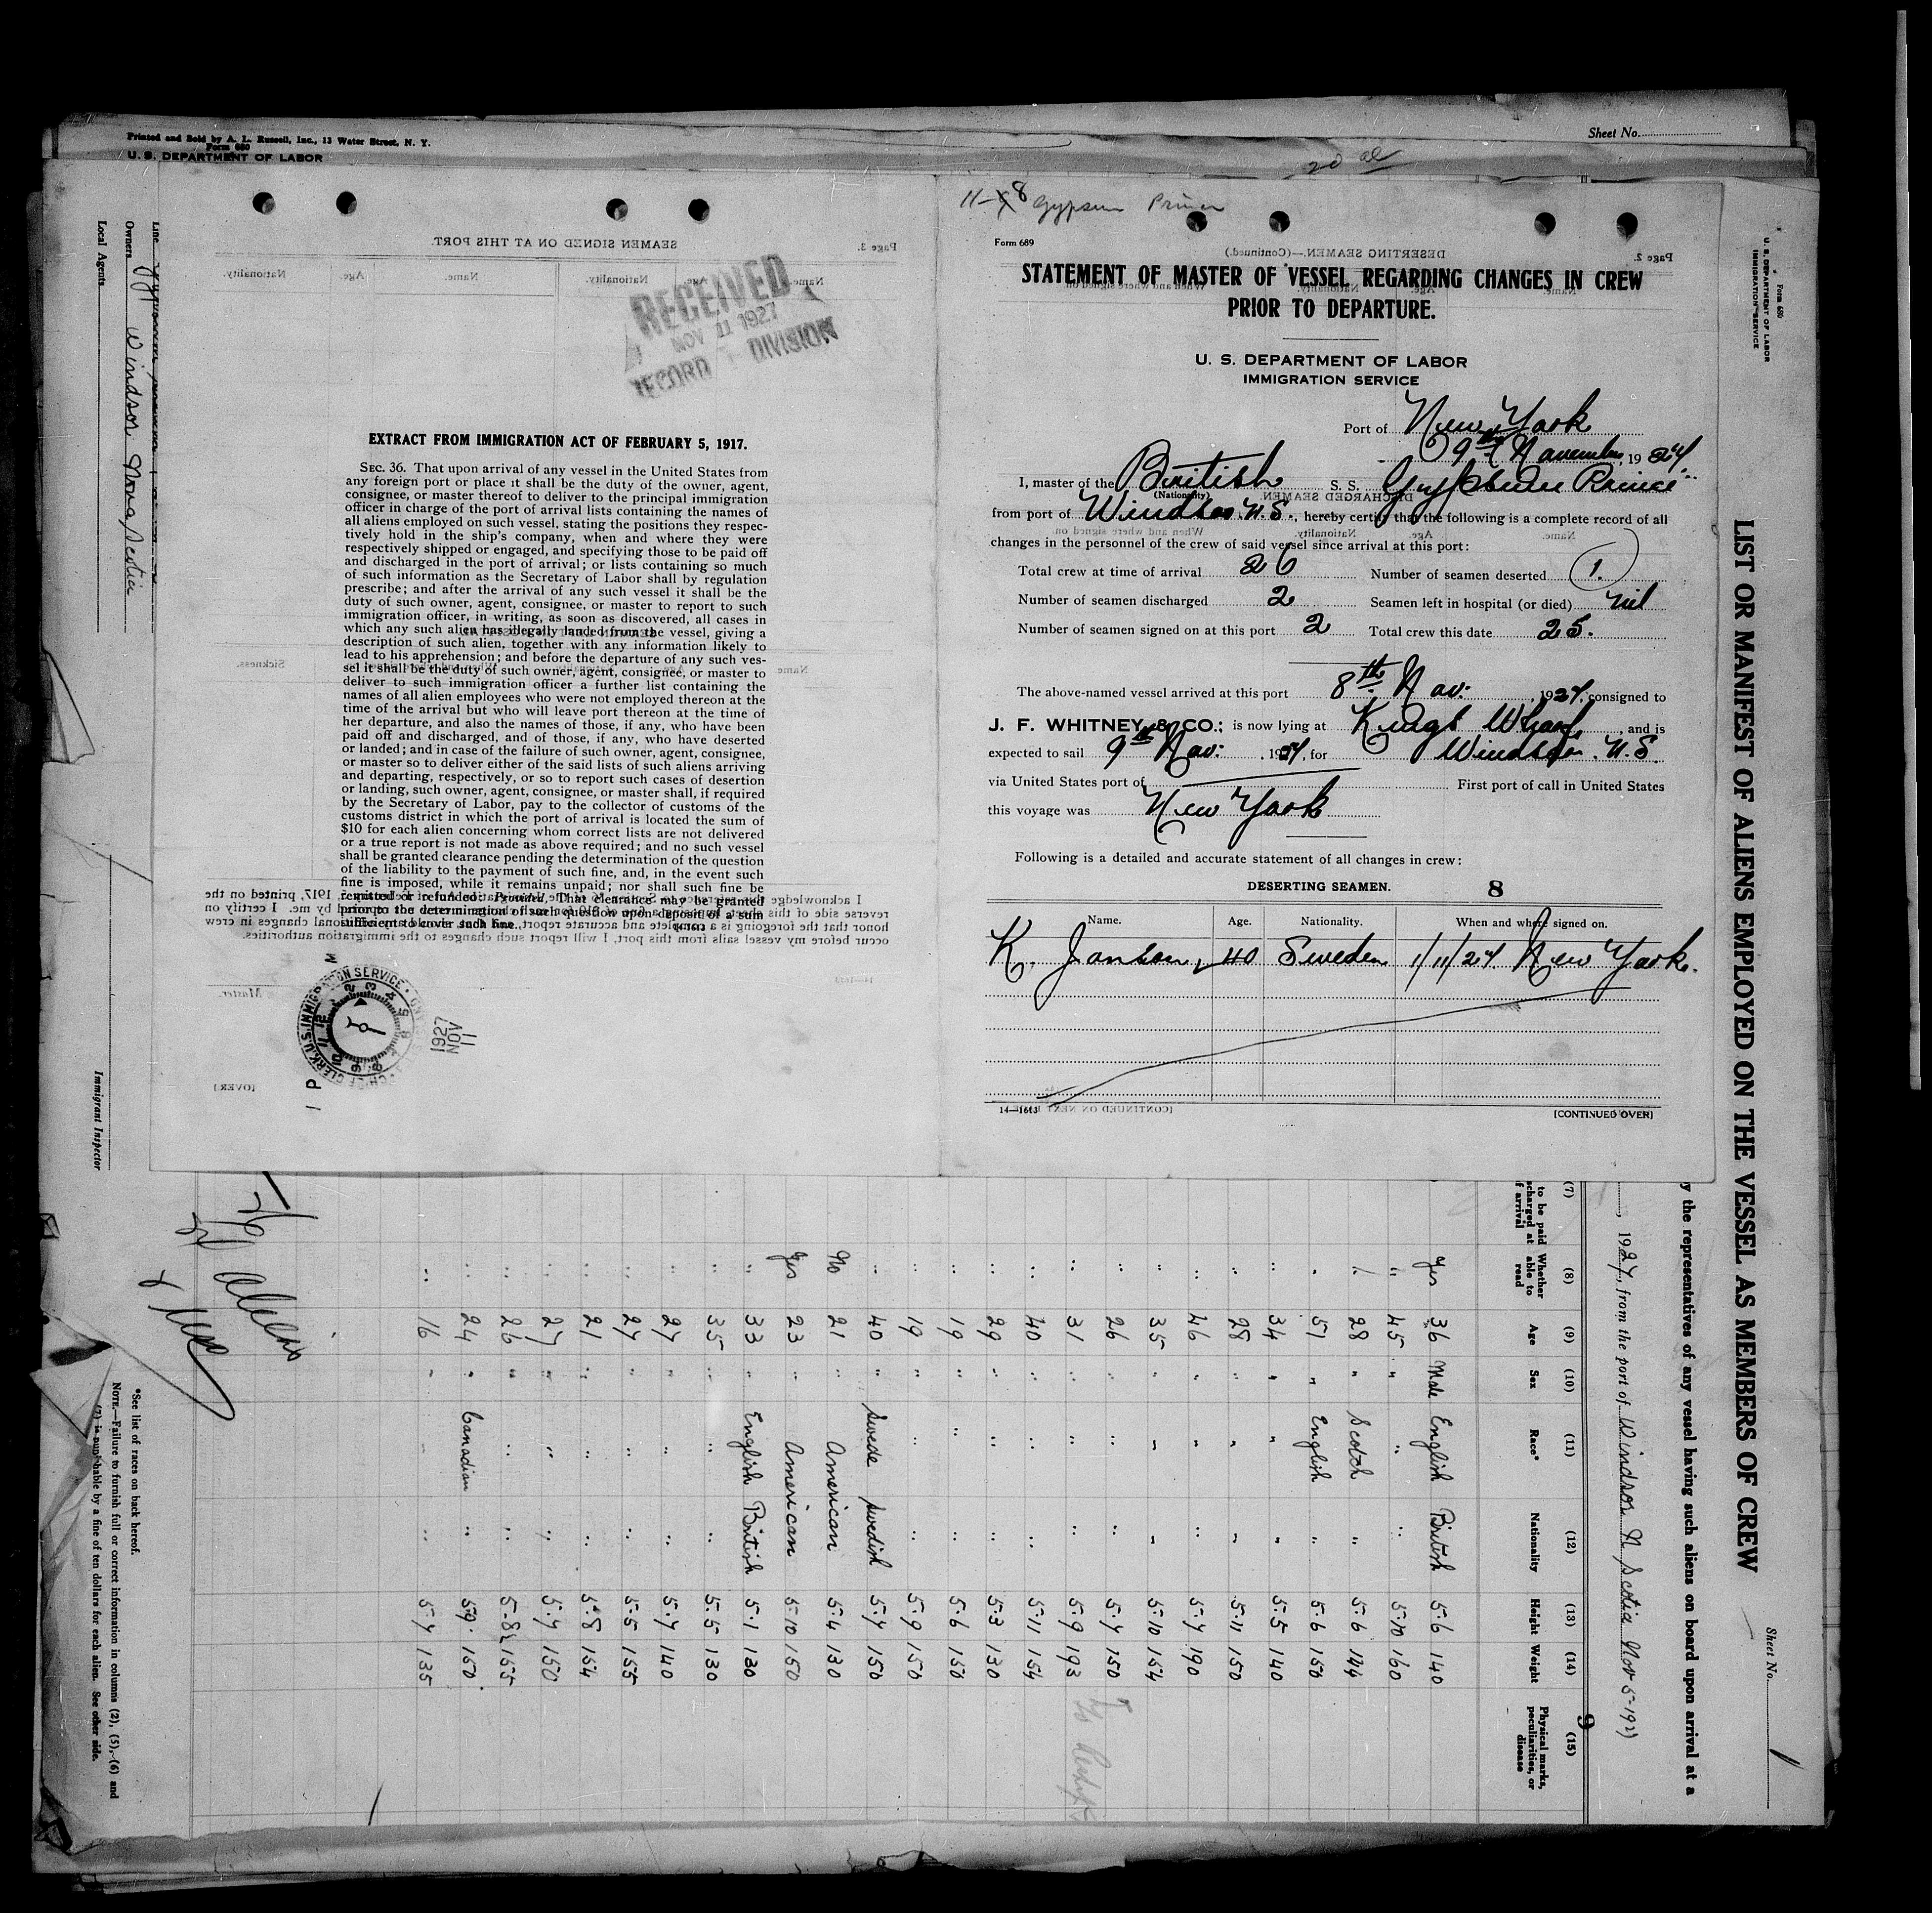 Sheet No.
Printed and Sold by A. L. Russell, Inc., 13 Water Street, N. Y.
Form 680
U. S. DEPARTMENT OF LABOR
Line
Owners Windsor Nova Scotia
Local Agents
Immigrant Inspector
SEAMEN SIGNED ON AT THIS PORT.
Page 3.
Name. Age. Nationality. Name. Age. Nationality.
RECEIVED
NOV 11 1927
RECORD DIVISION
EXTRACT FROM IMMIGRATION ACT OF FEBRUARY 5, 1917.
SEC. 36. That upon arrival of any vessel in the United States from
any foreign port or place it shall be the duty of the owner, agent,
consignee, or master thereof to deliver to the principal immigration
officer in charge of the port of arrival lists containing the names of
all aliens employed on such vessel, stating the positions they respec-
tively hold in the ship's company, when and where they were
respectively shipped or engaged, and specifying those to be paid off
and discharged in the port of arrival; or lists containing so much
of such information as the Secretary of Labor shall by regulation
prescribe; and after the arrival of any such vessel it shall be the
duty of such owner, agent, consignee, or master to report to such
immigration officer, in writing, as soon as discovered, all cases in
which any such alien has illegally landed from the vessel, giving a
description of such alien, together with any information likely to
lead to his apprehension; and before the departure of any such ves-
sel it shall be the duty of such owner, agent, consignee, or master to
deliver to such immigration officer a further list containing the
names of all alien employees who were not employed thereon at the
time of the arrival but who will leave port thereon at the time of
her departure, and also the names of those, if any, who have been
paid off and discharged, and of those, if any, who have deserted
or landed; and in case of the failure of such owner, agent, consignee,
or master so to deliver either of the said lists of such aliens arriving
and departing, respectively, or so to report such cases of desertion
or landing, such owner, agent, consignee, or master shall, if required
by the Secretary of Labor, pay to the collector of customs of the
customs district in which the port of arrival is located the sum of
$10 for each alien concerning whom correct lists are not delivered
or a true report is not made as above required; and no such vessel
shall be granted clearance pending the determination of the question
of the liability to the payment of such fine, and, in the event such
fine is imposed, while it remains unpaid; nor shall such fine be
remitted or refunded: Provided, That clearance may be granted
prior to the determination of such question upon deposit of a sum
sufficient to cover such fine.
Master.
[OVER]
CHIEF CLERK, U. S. IMMIGRATION SERVICE
1927
NOV
11
11-8 Gypsum Prince
Form 689
DESERTING SEAMEN.—(Continued.)
Page 2.
STATEMENT OF MASTER OF VESSEL REGARDING CHANGES IN CREW
PRIOR TO DEPARTURE.
U. S. DEPARTMENT OF LABOR
IMMIGRATION SERVICE
Port of New York
9th November, 1927
I, master of the British S. S. Gypsum Prince
(Nationality)
from port of Windsor N.S., hereby certify that the following is a complete record of all
changes in the personnel of the crew of said vessel since arrival at this port:
Total crew at time of arrival 26 Number of seamen deserted 1.
Number of seamen discharged 2 Seamen left in hospital (or died) nil
Number of seamen signed on at this port 2 Total crew this date 25.
The above-named vessel arrived at this port 8th Nov. 1927, consigned to
J. F. WHITNEY & CO.; is now lying at Kings Wharf, and is
expected to sail 9th Nov. 1927, for Windsor. N.S.
via United States port of First port of call in United States
this voyage was New York
Following is a detailed and accurate statement of all changes in crew:
DESERTING SEAMEN. 8
Name. Age. Nationality. When and where signed on.
K. Janson, 40 Sweden 1/11/27. New York.
14—1643
[CONTINUED OVER]
Form 686
U. S. DEPARTMENT OF LABOR
IMMIGRATION SERVICE
LIST OR MANIFEST OF ALIENS EMPLOYED ON THE VESSEL AS MEMBERS OF CREW
Sheet No. 1
y the representatives of any vessel having such aliens on board upon arrival at a
, 1927, from the port of Windsor N Scotia Nov 5-1927
9
(7) (8) (9) (10) (11) (12) (13) (14) (15)
to be paid Whether able to read Age Sex Race* Nationality Height Weight Physical marks, peculiarities, or disease
Yes 36 Male English British 5-6 140
" 45 " " " 5-10 160
28 " Scotch " 5-6 144
" 51 " English " 5-6 150
" 34 " " " 5-5 140
" 28 " " " 5-11 150
" 46 " " " 5-7 190
" 35 " " " 5-10 154
" 26 " " " 5-7 150
" 31 " " " 5-9 193
" 40 " " " 5-11 154
" 29 " " " 5-3 130
" 19 " " " 5-6 150
" 19 " " " 5-9 150
" 40 " Swede Swedish 5-7 150
No 21 " American 5-4 130
Yes 23 " American 5-10 150
" 33 " English British 5-1 130
" 35 " " " 5-5 130
" 27 " " " 5-7 140
" 27 " " " 5-5 155
" 21 " " " 5-8 154
" 27 " " " 5-7 150
" 26 " " " 5-8½ 155
" 24 " Canadian " 5-9 150
" 16 " " " 5-7 135
*See list of races on back hereof.
NOTE.—Failure to furnish full or correct information in columns (2), (5), (6) and
(7) is punishable by a fine of ten dollars for each alien. See other side.